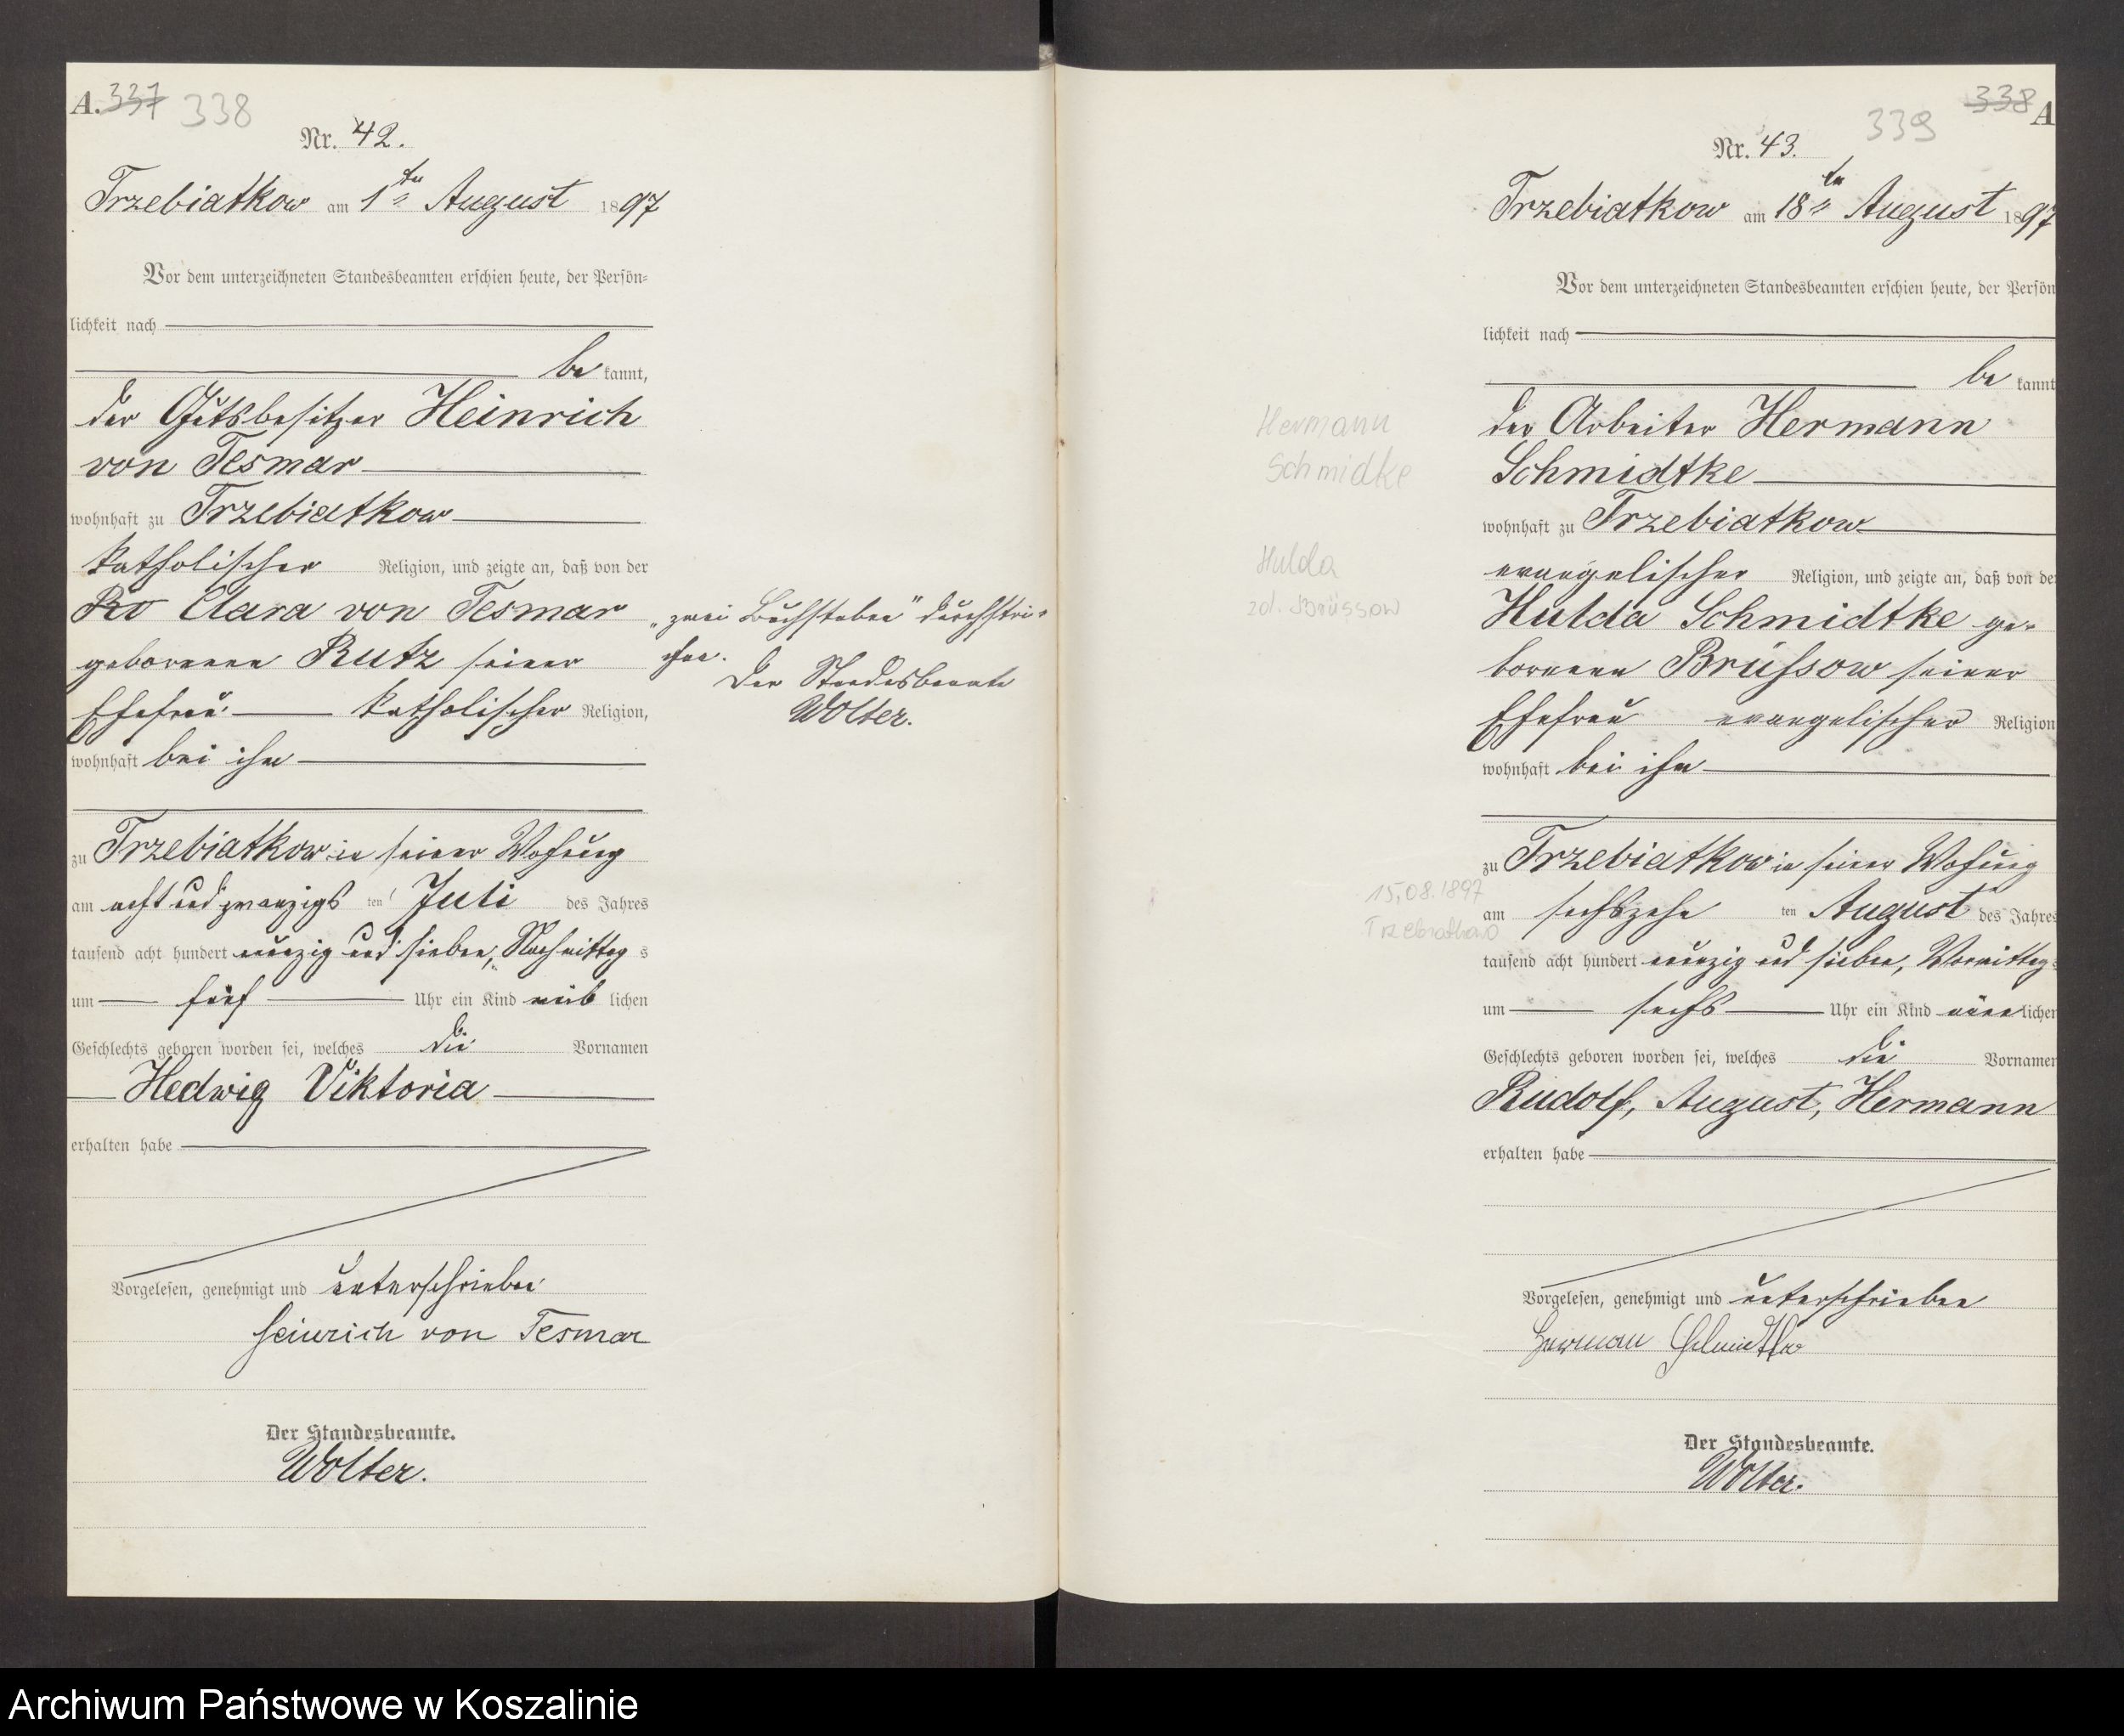 A. 337 338
Nr. 42.
Trzebiatkow am 1ten August 1897
Vor dem unterzeichneten Standesbeamten erschien heute, der Persön-
lichkeit nach
be kannt,
der Gutsbesitzer Heinrich
von Tesmar
wohnhaft zu Trzebiatkow
katholischer Religion, und zeigte an, daß von der
Clara von Tesmar
geborenen Rutz seiner
Ehefrau katholischer Religion,
wohnhaft bei ihm
zu Trzebiatkow in seiner Wohnung
am acht und zwanzigs ten Juli des Jahres
tausend acht hundert neunzig und sieben, Nachmittag s
um fünf Uhr ein Kind weib lichen
Geschlechts geboren worden sei, welches die Vornamen
Hedwig Viktoria
erhalten habe
Vorgelesen, genehmigt und unterschrieben
Heinrich von Tesmar
Der Standesbeamte.
Wolter.
"zwei Buchstaben" durchstri-
chen.
Der Standesbeamte
Wolter.
338 A
339
Nr. 43.
Trzebiatkow am 18ten August 1897
Vor dem unterzeichneten Standesbeamten erschien heute, der Persön
lichkeit nach
be kannt
der Arbeiter Hermann
Schmidtke
wohnhaft zu Trzebiatkow
evangelischer Religion, und zeigte an, daß von der
Hulda Schmidtke ge-
borenen Brüssow seiner
Ehefrau evangelischer Religion
wohnhaft bei ihm
zu Trzebiatkow in seiner Wohnung
am sechszehn ten August des Jahres
tausend acht hundert neunzig und sieben, Vormittag s
um sechs Uhr ein Kind männ lichen
Geschlechts geboren worden sei, welches die Vornamen
Rudolf, August, Hermann
erhalten habe
Vorgelesen, genehmigt und unterschrieben
Herman Schmidtke
Der Standesbeamte.
Wolter.
Hermann
Schmidke
Hulda
zd. Brüssow
15.08.1897
Trzebiatkow
Archiwum Państwowe w Koszalinie